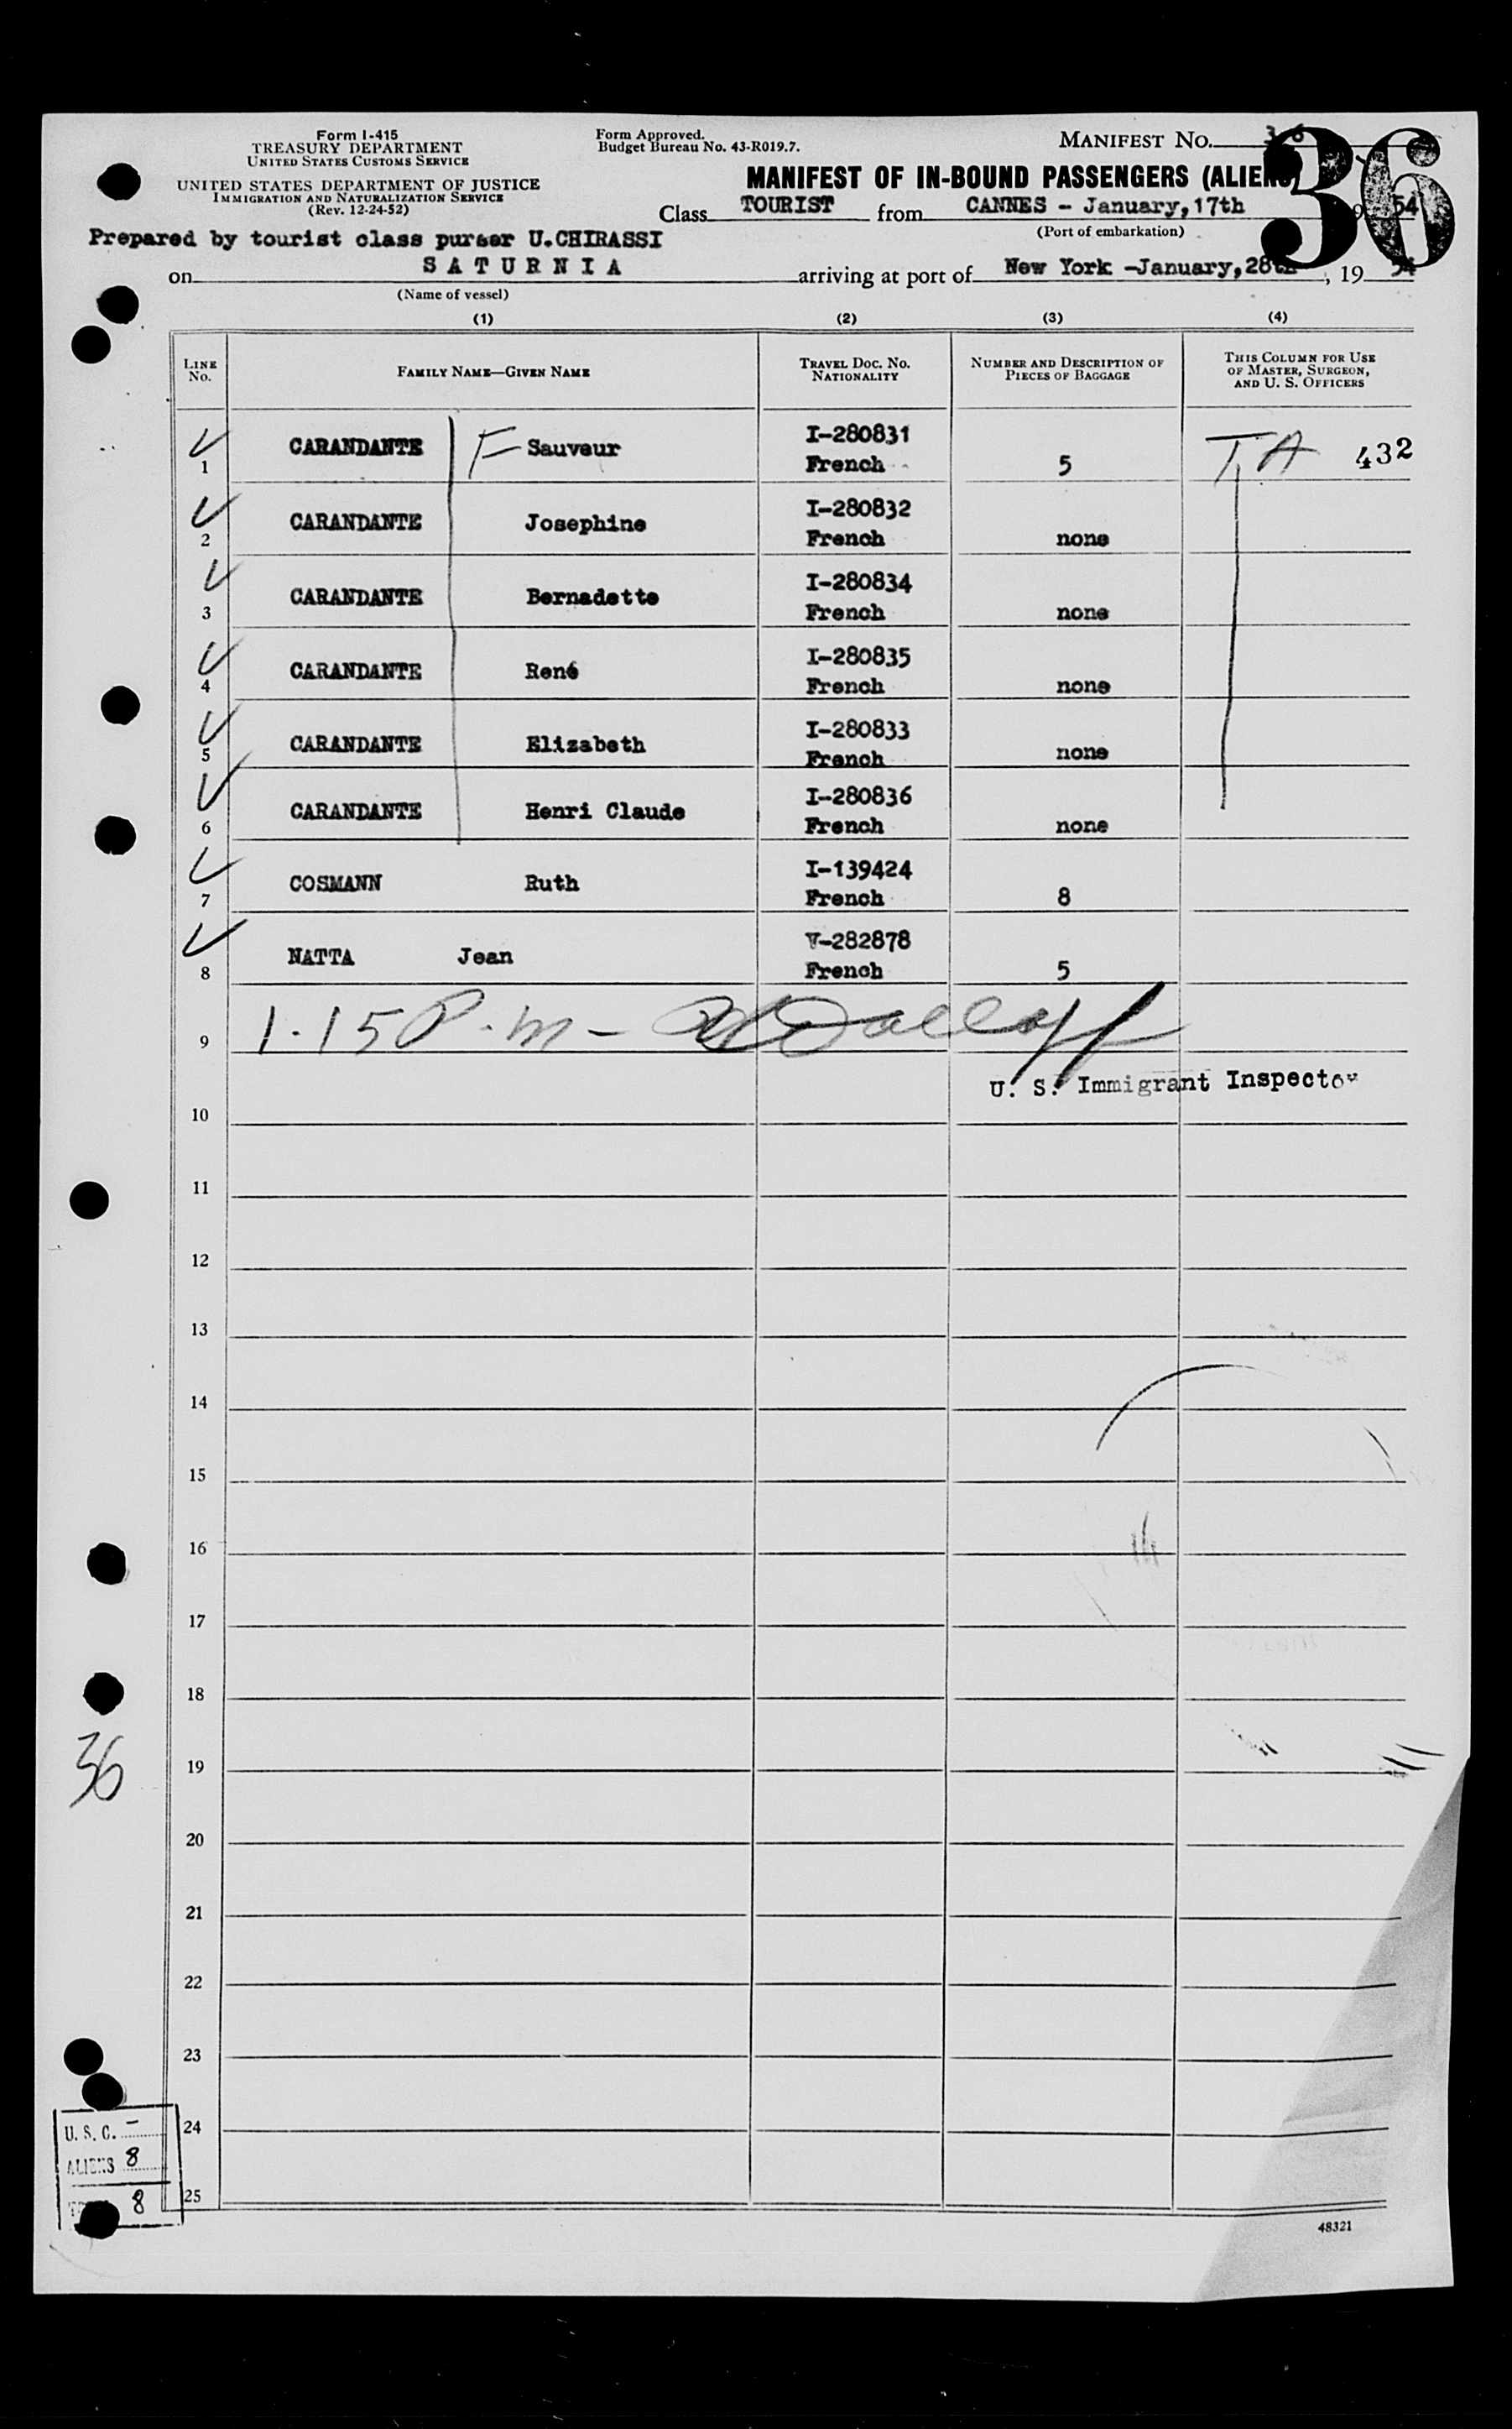 Form I-415
TREASURY DEPARTMENT
UNITED STATES CUSTOMS SERVICE
UNITED STATES DEPARTMENT OF JUSTICE
IMMIGRATION AND NATURALIZATION SERVICE
(Rev. 12-24-52)
Form Approved.
Budget Bureau No. 43-R019.7.
MANIFEST NO. 36
36
MANIFEST OF IN-BOUND PASSENGERS (ALIENS
Class TOURIST from CANNES - January, 17th 9 54
(Port of embarkation)
Prepared by tourist class purser U.CHIRASSI
on SATURNIA arriving at port of New York -January, 28th, 19 54
(Name of vessel)
(1) (2) (3) (4)
LINE No. FAMILY NAME—GIVEN NAME TRAVEL DOC. NO. NATIONALITY NUMBER AND DESCRIPTION OF PIECES OF BAGGAGE THIS COLUMN FOR USE OF MASTER, SURGEON, AND U. S. OFFICERS
1 CARANDANTE F Sauveur I-280831 French 5 TA 432
2 CARANDANTE Josephine I-280832 French none
3 CARANDANTE Bernadette I-280834 French none
4 CARANDANTE René I-280835 French none
5 CARANDANTE Elizabeth I-280833 French none
6 CARANDANTE Henri Claude I-280836 French none
7 COSMANN Ruth I-139424 French 8
8 NATTA Jean V-282878 French 5
9 1.15 P.m -
U. S. Immigrant Inspector
10
11
12
13
14
15
16
17
18
36
19
20
21
22
23
24
25
U. S. C. -
ALIENS 8
8
48321